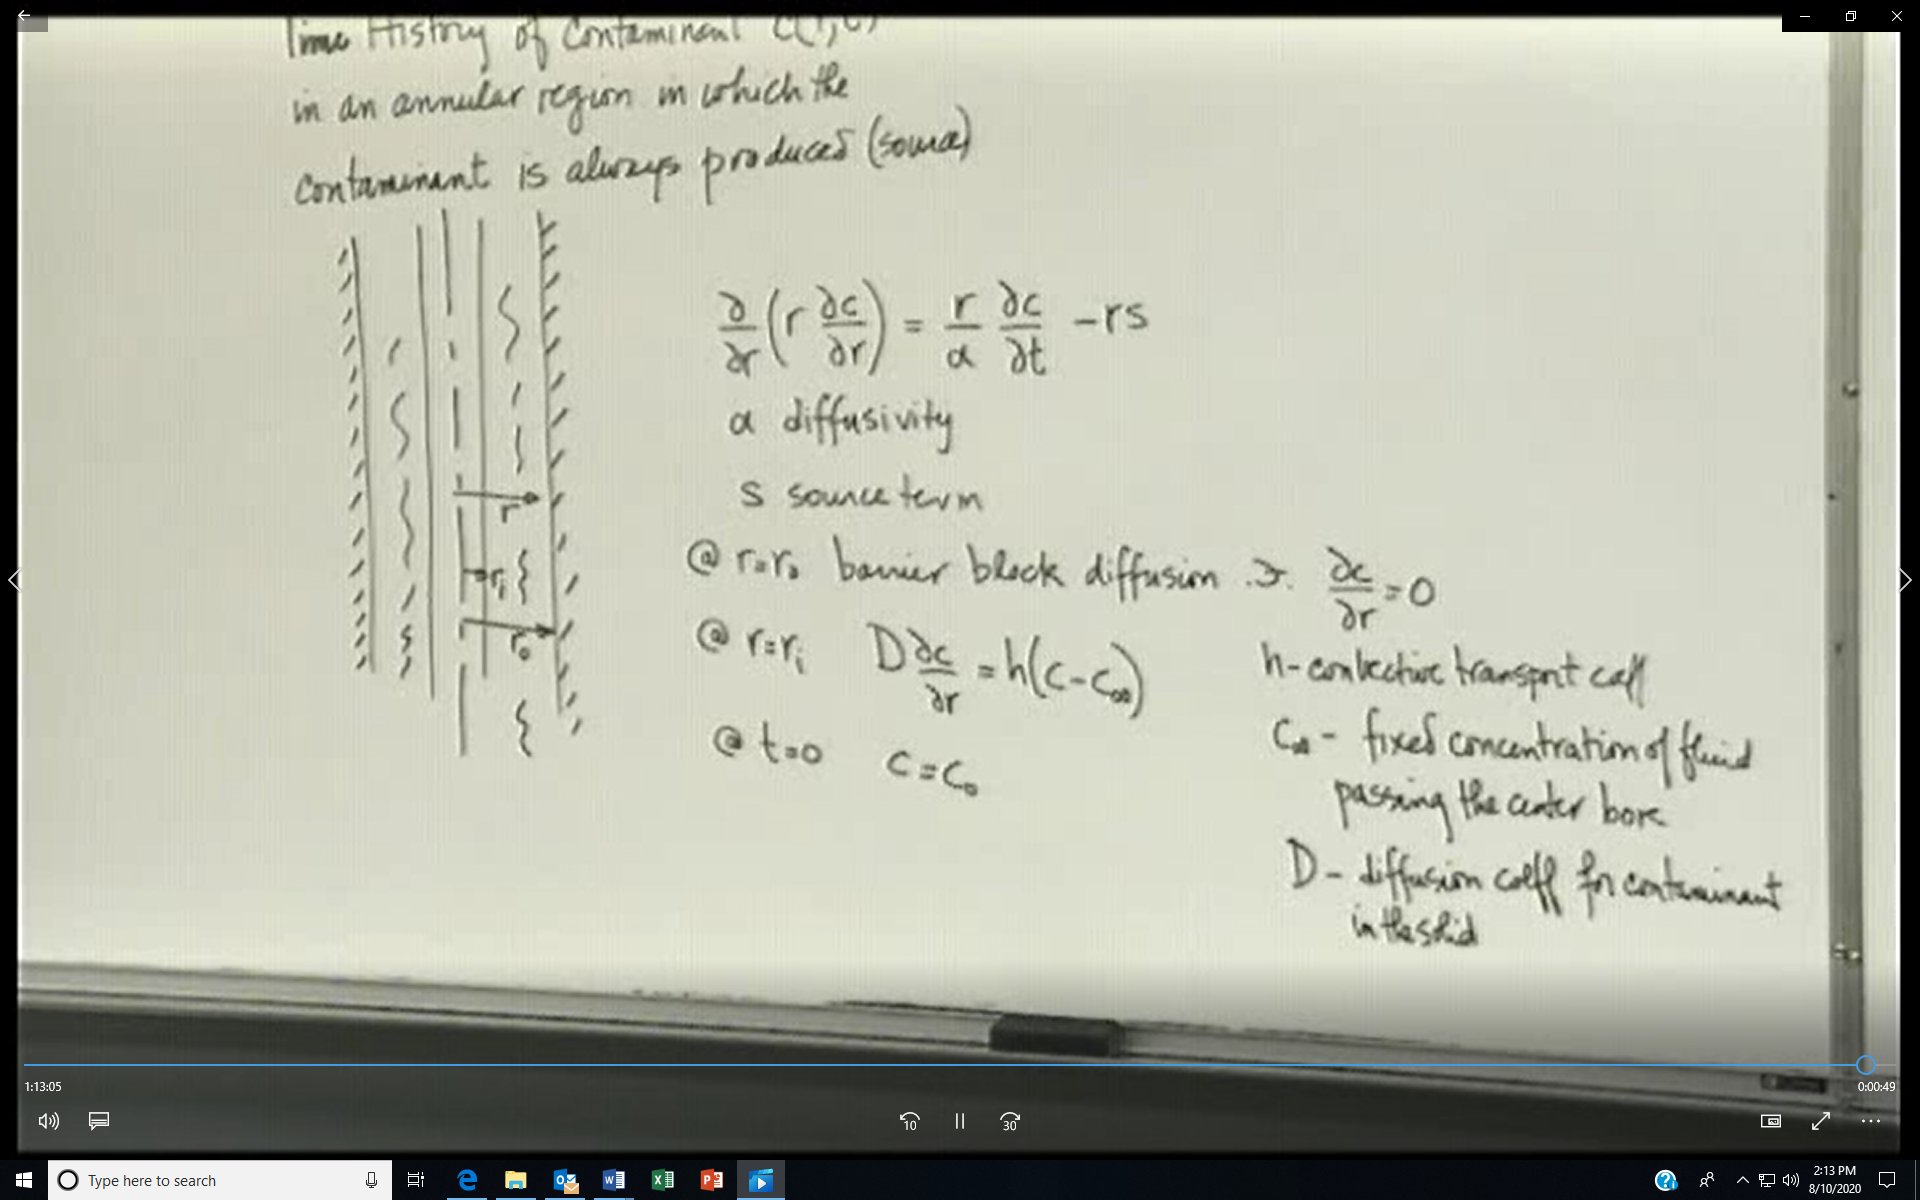 Time History of Contaminant C(r,t)
in an annular region in which the
contaminant is always produced (source)
∂/∂r (r ∂c/∂r) = r/α ∂c/∂t - rs
α diffusivity
s source term
r
ri
ro
@ r=ro barrier block diffusion .⇒. ∂c/∂r = 0
@ r=ri D ∂c/∂r = h(c-c∞)
@ t=0 c=co
h-convective transport coeff
C∞ - fixed concentration of fluid
passing the center bore
D - diffusion coeff for contaminant
in the solid
1:13:05
0:00:49
10
30
Type here to search
2:13 PM
8/10/2020